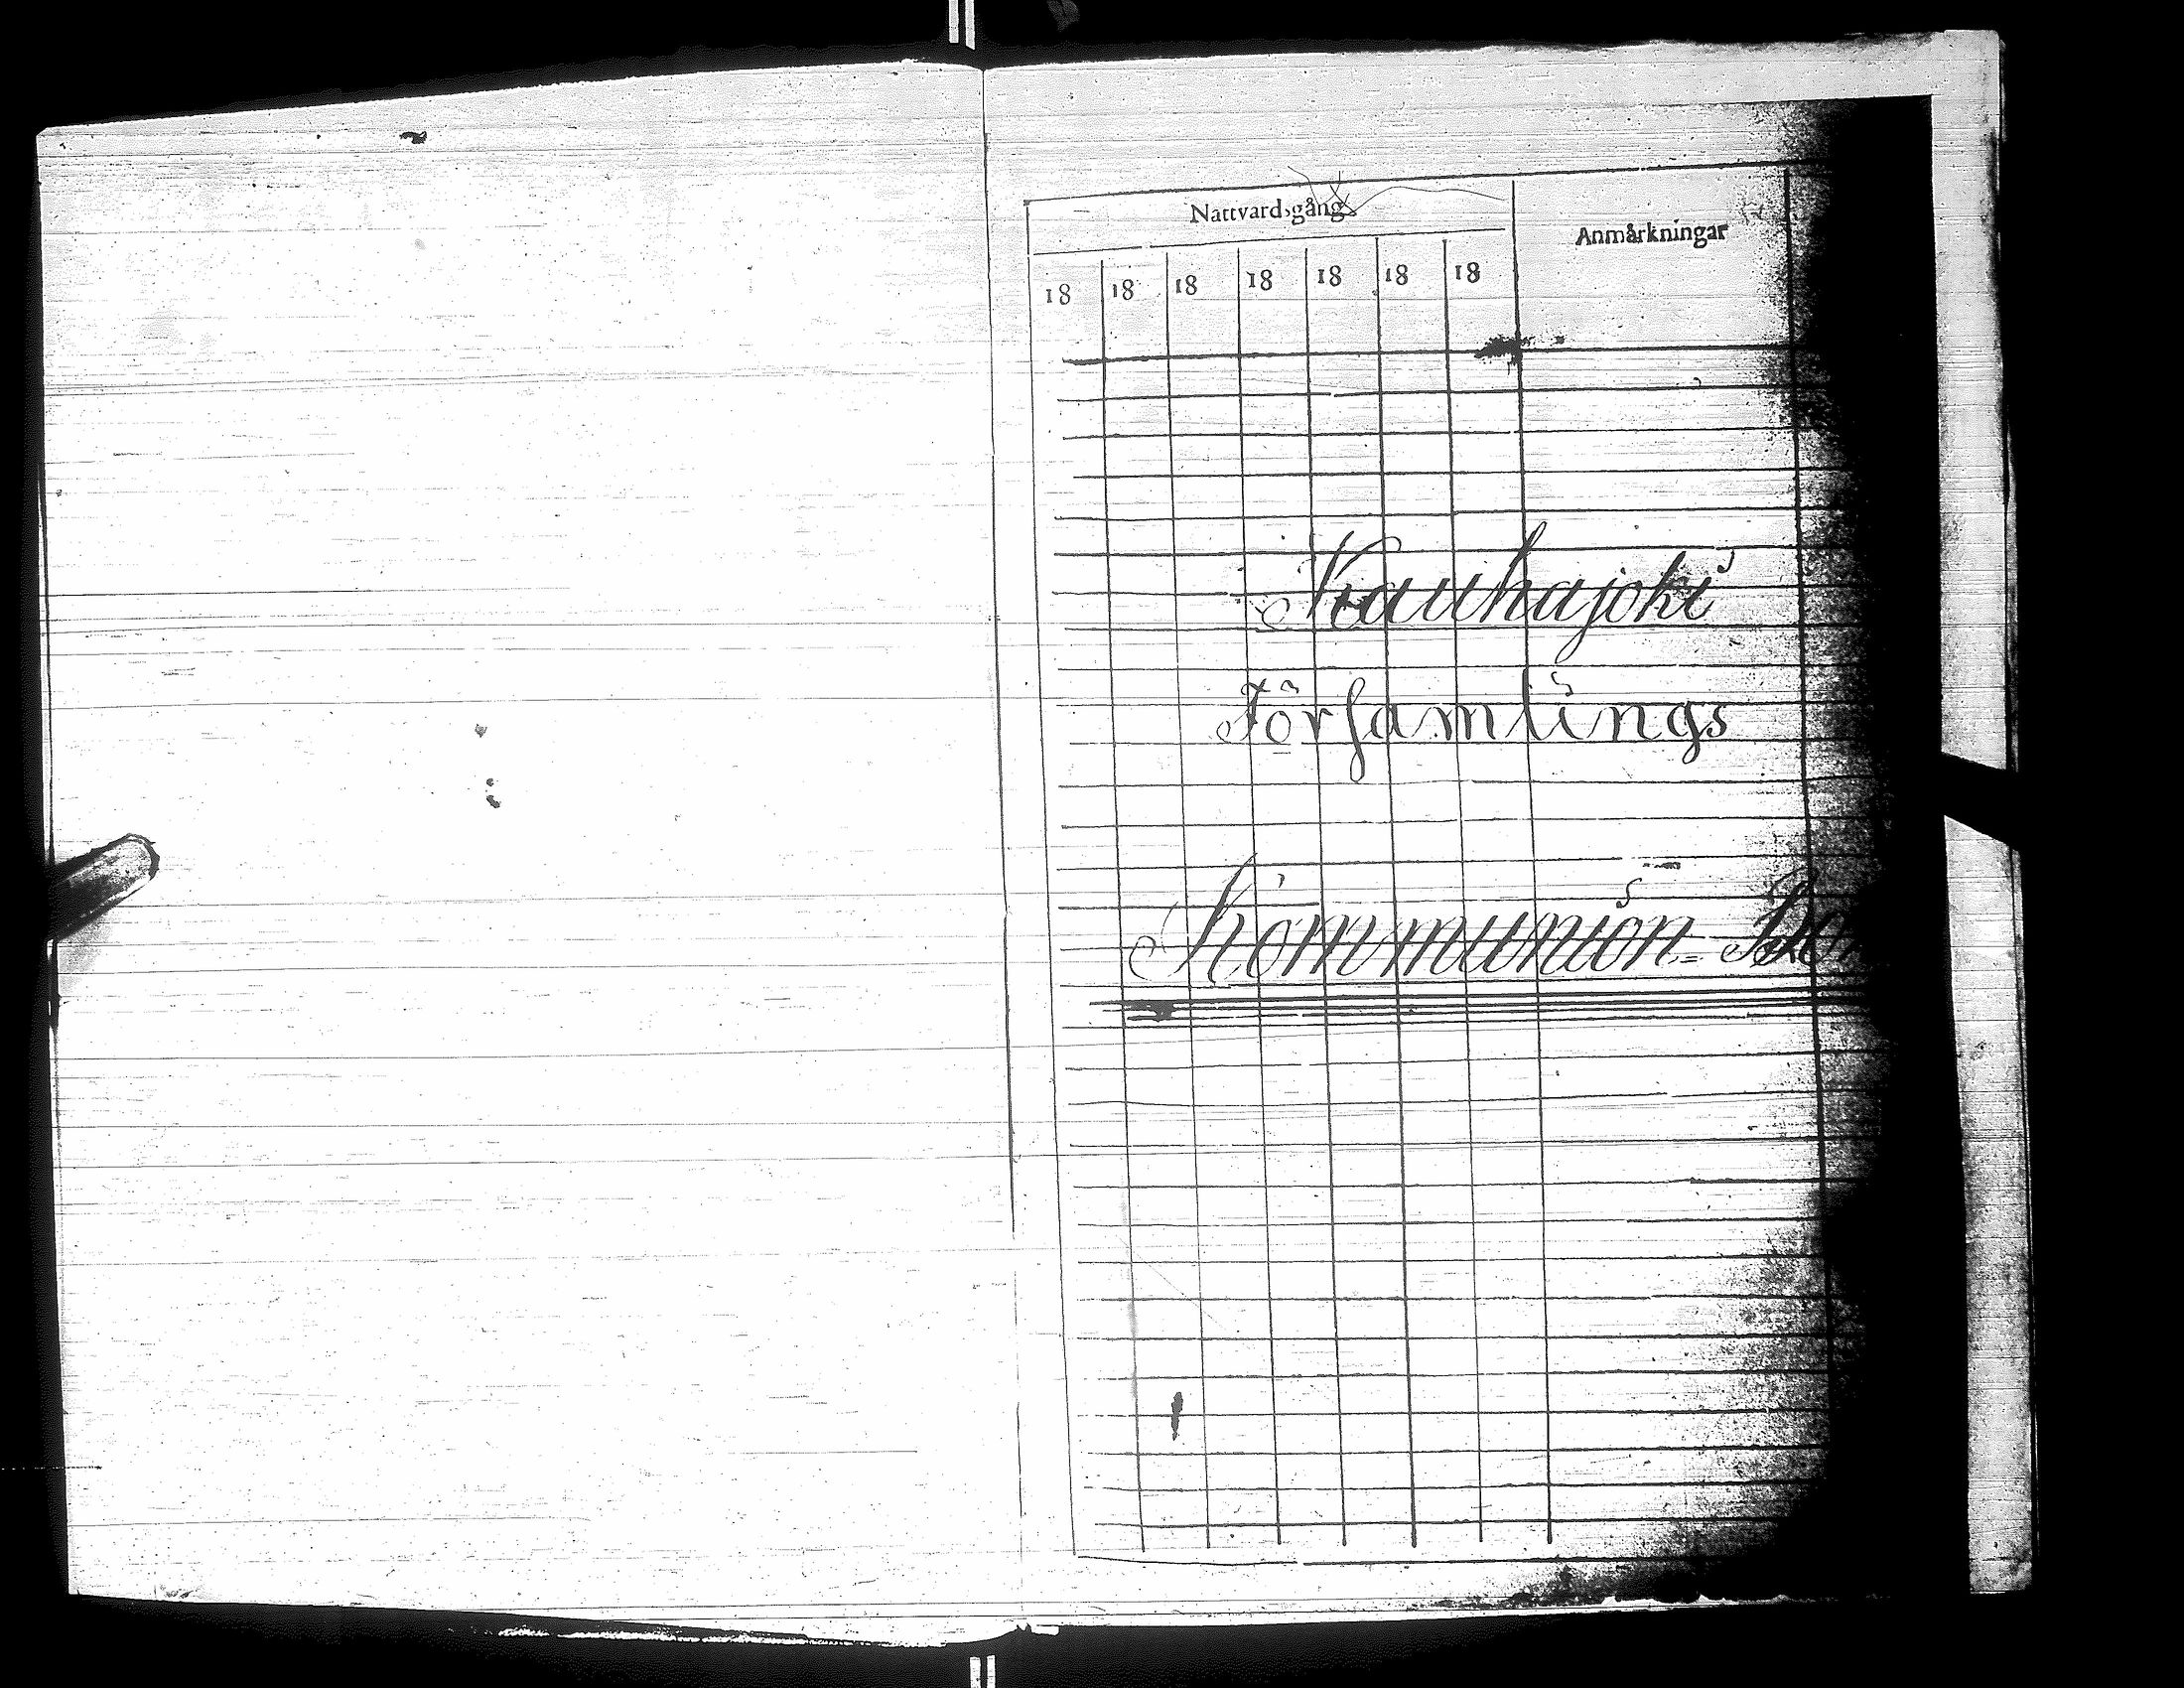 Nattvardsgång
Anmärkningar
18 18 18 18 18 18 18
Kauhajoki
Församlings
Kommunion=